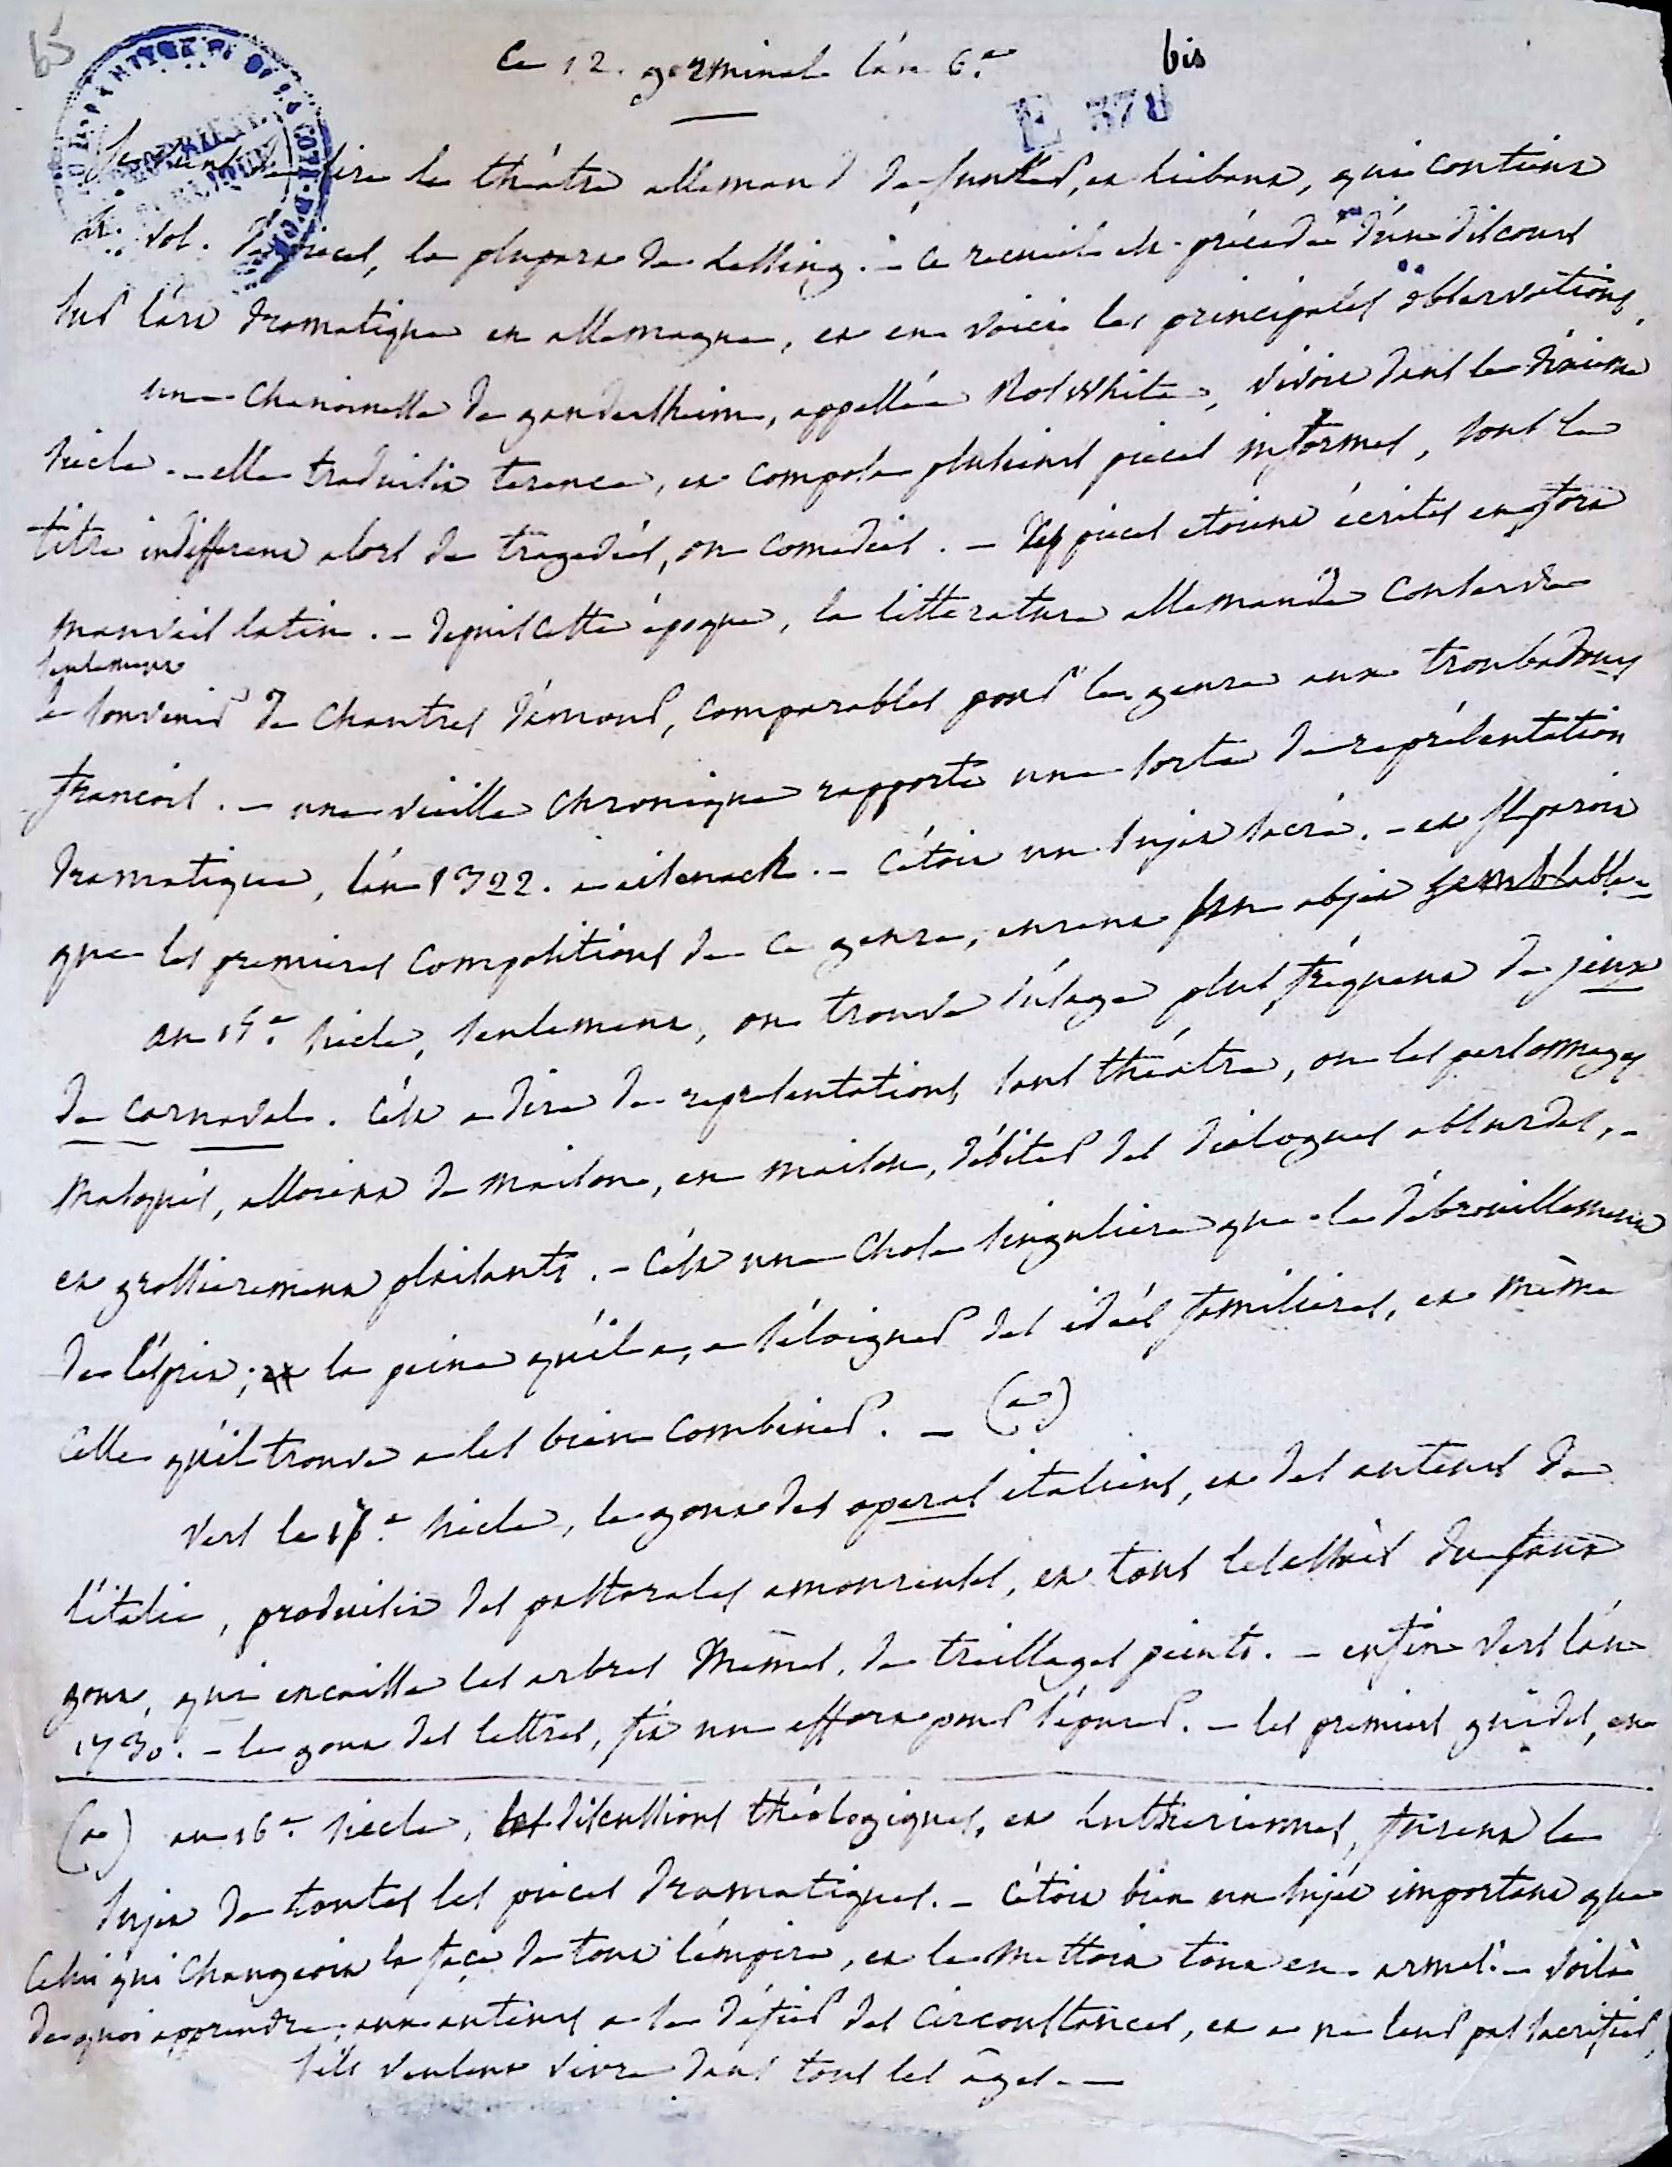 65
ce 12. germinal l'an 6.e
bis
E 378
Je viens de lire le théâtre allemand de junker, et liebaut, qui contient
4. vol. de pieces, la plupart de lessing. - ce recueil est précédé d'un discours
sur l'art dramatique en allemagne, et en voici les principales observations.
une chanoinesse de gandersheim, appellée Roswhite, vivoit dans le dixieme
siecle. - elle traduisit terence, et composa plusieurs pieces informes, sous le
titre indifferent alors de tragedies, ou comedies. - Ces pieces etoient écrites en fort
mauvais latin. - depuis cette époque, la litterature allemande conserva
seulement
le souvenir de chantres d'amour, comparables pour le genre aux troubadours
francois. - une vieille chronique rapporte une sorte de représentation
dramatique, l'an 1322. a eisenack. - c'étoit un sujet sacré. - et il paroit
que les premieres compositions de ce genre, eurent un objet semblable.
au 15.e siecle, seulement, on trouve l'usage plus fréquent de jeux
de carnaval. c'est a dire de représentations sans théatre, ou les personnages
masqués, alloient de maison, en maison, débiter des dialogues absurdes, -
et grossierement plaisants. - c'est une chose singuliere que le débrouillement
de l'esprit; la peine qu'il a, a s'éloigner des idées familieres, et même
celle qu'il trouve a les bien combiner. - (a)
vers le 17.e siecle, le gout des operas italiens, et des auteurs de
l'italie, produisit des pastorales amoureuses, et tous les essais du faux
gout, qui encaille les arbres mêmes, de treillages peints. - enfin vers l'an
1730. - le gout des lettres, fit un effort pour s'épurer. - les premiers guides, en
(a) au 16.e siecle, les discussions théologiques, et lutheriennes, furent le
sujet de toutes les pieces dramatiques. - c'étoit bien un sujet important que
celui qui changeoit la face de tout l'empire, et le mettoit tout en armes. - voilà
de quoi apprendre, aux auteurs a se défier des circonstances, et a ne leur pas sacrifier,
s'ils veulent vivre dans tous les âges. -